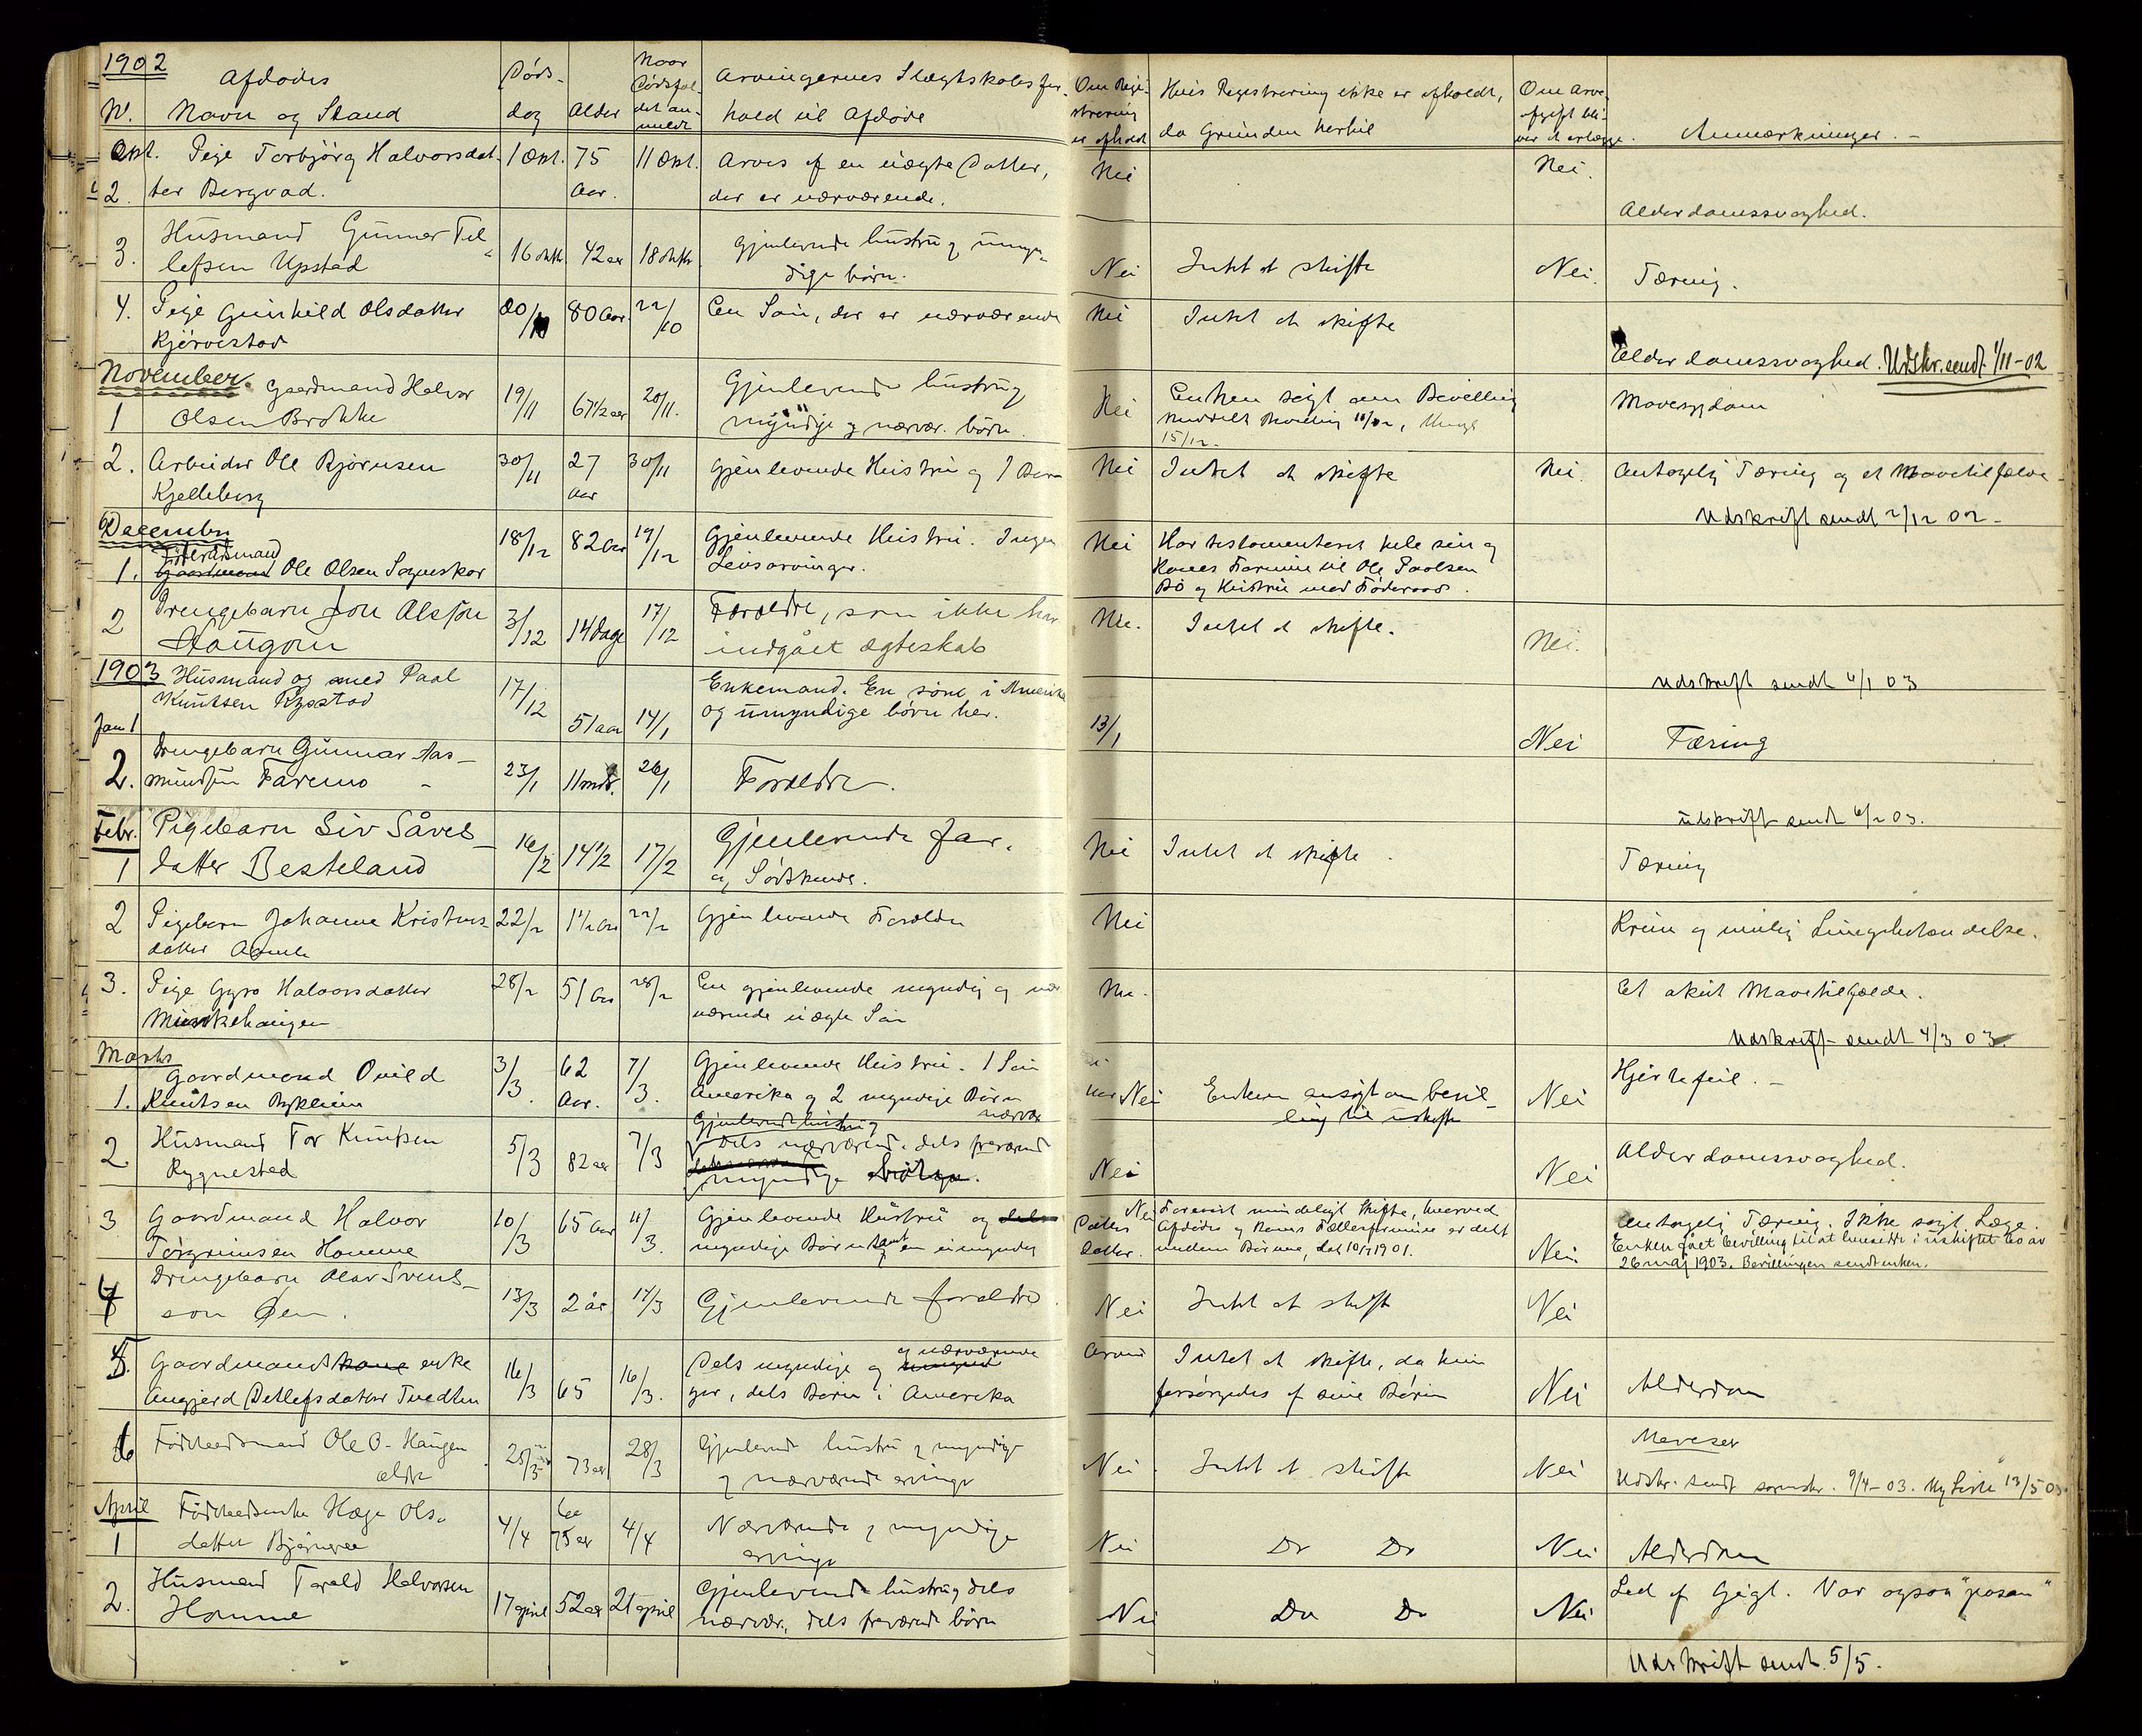 1902
Nr. Afdødes Navn og Stand
Døds-
dag
Alder
Naar
Dødsfal-
det an-
meldt
Arvingernes Slægtskabsfor-
hold til Afdøde
Om Regi-
strering
er afholdt
Hvis Registrering ikke er afholdt,
da Grunden hertil
Om Arve-
afgift bli-
ver at erlægge.
Anmærkninger. -
Okt. Pige Torbjörg Halvorsdat- 1 Okt. 75 11 Okt. Arves af en uægte Datter, Nei Nei.
2. ter Bergvad. Aar. der er nærværende.
Alderdomssvaghed.
3. Husmand Gunnar Tel-
lefsen Upstad 16 oktbr. 42 aar 18 oktbr. Gjenlevende hustru og umyn-
dige børn. Nei Intet at skifte Nei. Tæring.
4. Pige Gunhild Olsdatter
Rjörvestad 20/10 80 Aar. 22/10 En Sön, der er nærværende Nei Intet at skifte
Alderdomssvaghed. Udskr. sendt 1/11-02
November. Gaardmand Halvor
1 Olsen Brokke 19/11 67 1/2 aar 20/11. Gjenlevende hustru og
myndige og nærvær. børn. Nei Enken søgt om Bevilling
15/12-
Mavesygdom
2. Arbeider Ole Bjørnsen
Kjelleberg 30/11 27
Aar 30/11 Gjenlevende Hustru og 1 Barn Nei Intet at skifte Nei. Antagelig Tæring og et Mavetilfælde
Udskrift sendt 2/12 02-
December
1. Föderaadsmand
Gaardmand Ole Olsen Sagneskar 18/12 82 Aar 19/12 Gjenlevende Hustru. Ingen
Livsarvinger. Nei Har testamenteret hele sin og
Kones Formue til Ole Paalsen
Bö og Hustru med Föderaad.
2 Drengebarn Jon Olsson
Haugom 3/12 14 Dage 17/12 Forældre, som ikke har
indgået ægteskab Nei. Intet at skifte. Nei.
Udskrift sendt 4/1 03
1903 Husmand og smed Paal
Knutsen Rysstad
Jan 1 17/12 51 aar 14/1 Enkemand. En sönn i Amerika
og umyndige börn her. 13/1 Nei Tæring
2. Drengebarn Gunnar Aas-
mundsen Faremo 23/1 11 mdr. 26/1 Forældre.
Udskrift sendt 6/2 03.
Febr. Pigebarn Siv Såves-
1 datter Besteland 16/2 14 1/2 17/2 Gjenlevende far.
og Södskende. Nei Intet at skifte. Tæring
2 Pigebarn Johanne Kristens-
datter 22/2 1 1/2 Aar 22/2 Gjenlevende Forældre Nei Krim og mulig Lungebetændelse.
3. Pige Gyro Halvorsdatter
Munkehaugen 28/2 51 Aar 28/2 En gjenlevende myndig og nær
værende uægte Sön Nei. Et akut Mavetilfælde.
Udskrift sendt 4/3 03
Marts
1. Gaardmand Ovild
Knutsen Rykleim 3/3. 62
Aar. 7/3. Gjenlevende Hustru. 1 Sön i
Amerika og 2 myndige Börn nærvær Nei Enken ansögt om bevil-
ling til uskifte Nei Hjertefeil. -
2 Husmand Tor Knutsen
Rygnestad 5/3 82 aar 7/3 Gjenlevende hustru og
dels nærværend. dels fraværend
myndige Nei Nei Alderdomssvaghed.
3 Gaardmand Halvor
Torgrimsen Homme 10/3 65 Aar 11/3. Gjenlevende Hustru og dels
myndige Börn samt en umyndig
Datters
datter. Nei Foreviist mindeligt Skifte, hvorved
Afdödes og Kones Fællesformue er delt
mellem Börnene, dat. 10/7 1901. Nei. Antagelig Tæring. Ikke søgt Læge.
Enken fået bevilling til at hensidde i uskiftet bo av
26 maj 1903. Bevillingen sendt enken.
4 Drengebarn Olav Svens-
son Øen. 13/3 2 år 14/3 Gjenlevende forældre. Nei Intet at skifte Nei
5. Gaardmands kone enke
Angjerd Detlefsdatter Tvedten 16/3 65 16/3. Dels myndige og nærværende
dels Börn i Amerika Intet at skifte, da hun
forsörgedes af sine Börn Nei Alderdom
6 Föderaadsmand Ole O. Haugen
ældre 28/3 73 aar 28/3 Gjenlevende hustru og myndige
og nærværende arvinge Nei. Intet at skifte Nei
Udskr. sendt sorenskr. 9/4-03. Ny Liste 13/5 03.
April
1 Föderaadsenke Hæge Ols-
datter Bjørnaraa 4/4 ca
75 aar 4/4 Nærværende og myndige
arvinge Nei Do Do Nei Alderdom
2. Husmand Tarald Halvorsen
Homme 17 april 52 aar 21 april Gjenlevende hustru, dels
nærvær., dels fraværende børn Nei Do Do Nei Led af Gigt. Var ogsaa "posen"
Udskrift sendt 5/5.